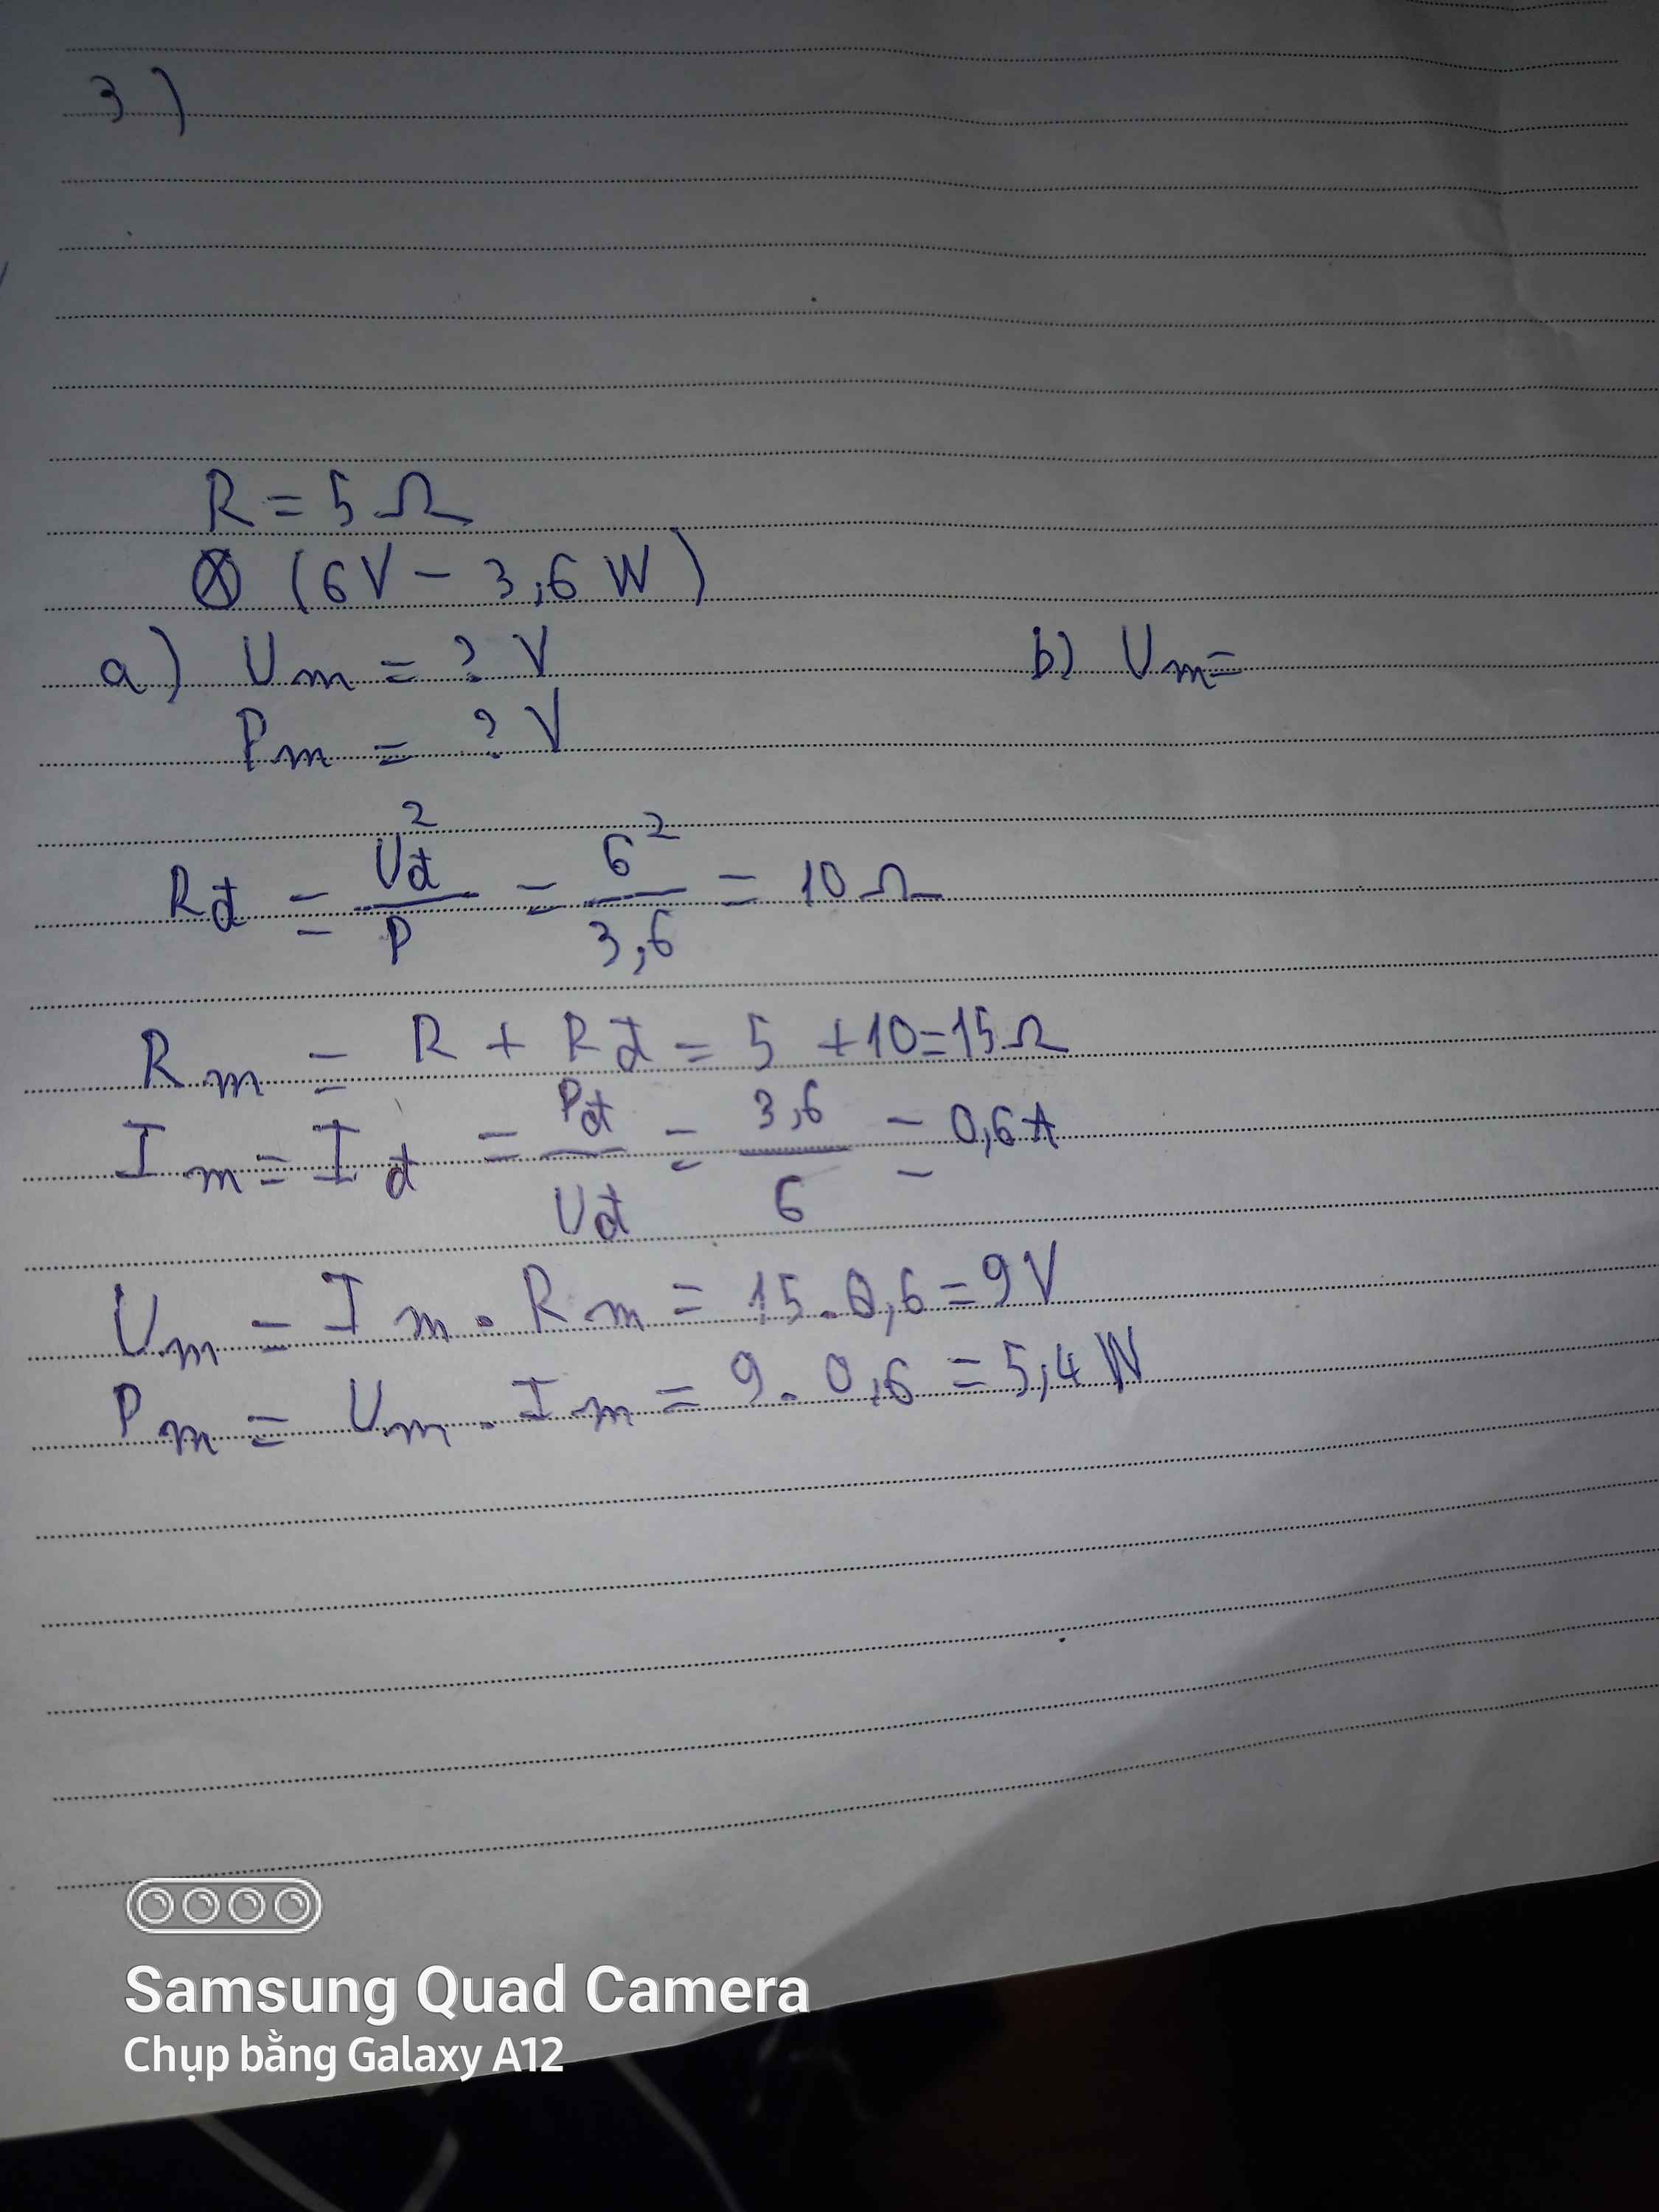 3)
R = 5 Ω
⊗ (6V - 3,6 W)
a) Um = ? V
b) Um=
Pm = ? V
Rđ = Uđ² / P = 6² / 3,6 = 10 Ω
Rm = R + Rđ = 5 + 10 = 15 Ω
Im = Iđ = Pđ / Uđ = 3,6 / 6 = 0,6 A
Um = Im . Rm = 15 . 0,6 = 9 V
Pm = Um . Im = 9 . 0,6 = 5,4 W
Samsung Quad Camera
Chụp bằng Galaxy A12